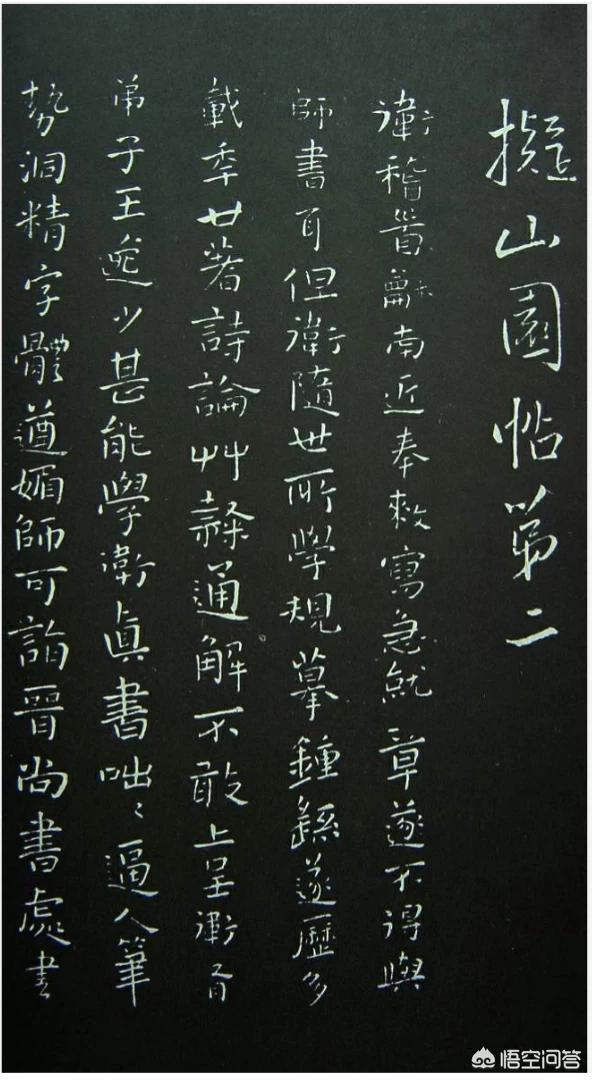 擬山園帖第二
衛稽首龢南近奉敕寫急就章遂不得與
師書耳但衛隨世所學規摹鍾繇遂歷多
載秊廿著詩論艸隸通解不敢上呈衛有
弟子王逸少甚能學衛眞書咄〻逼人筆
勢洞精字體遒媚師可詣晉尚書處書
悟空问答